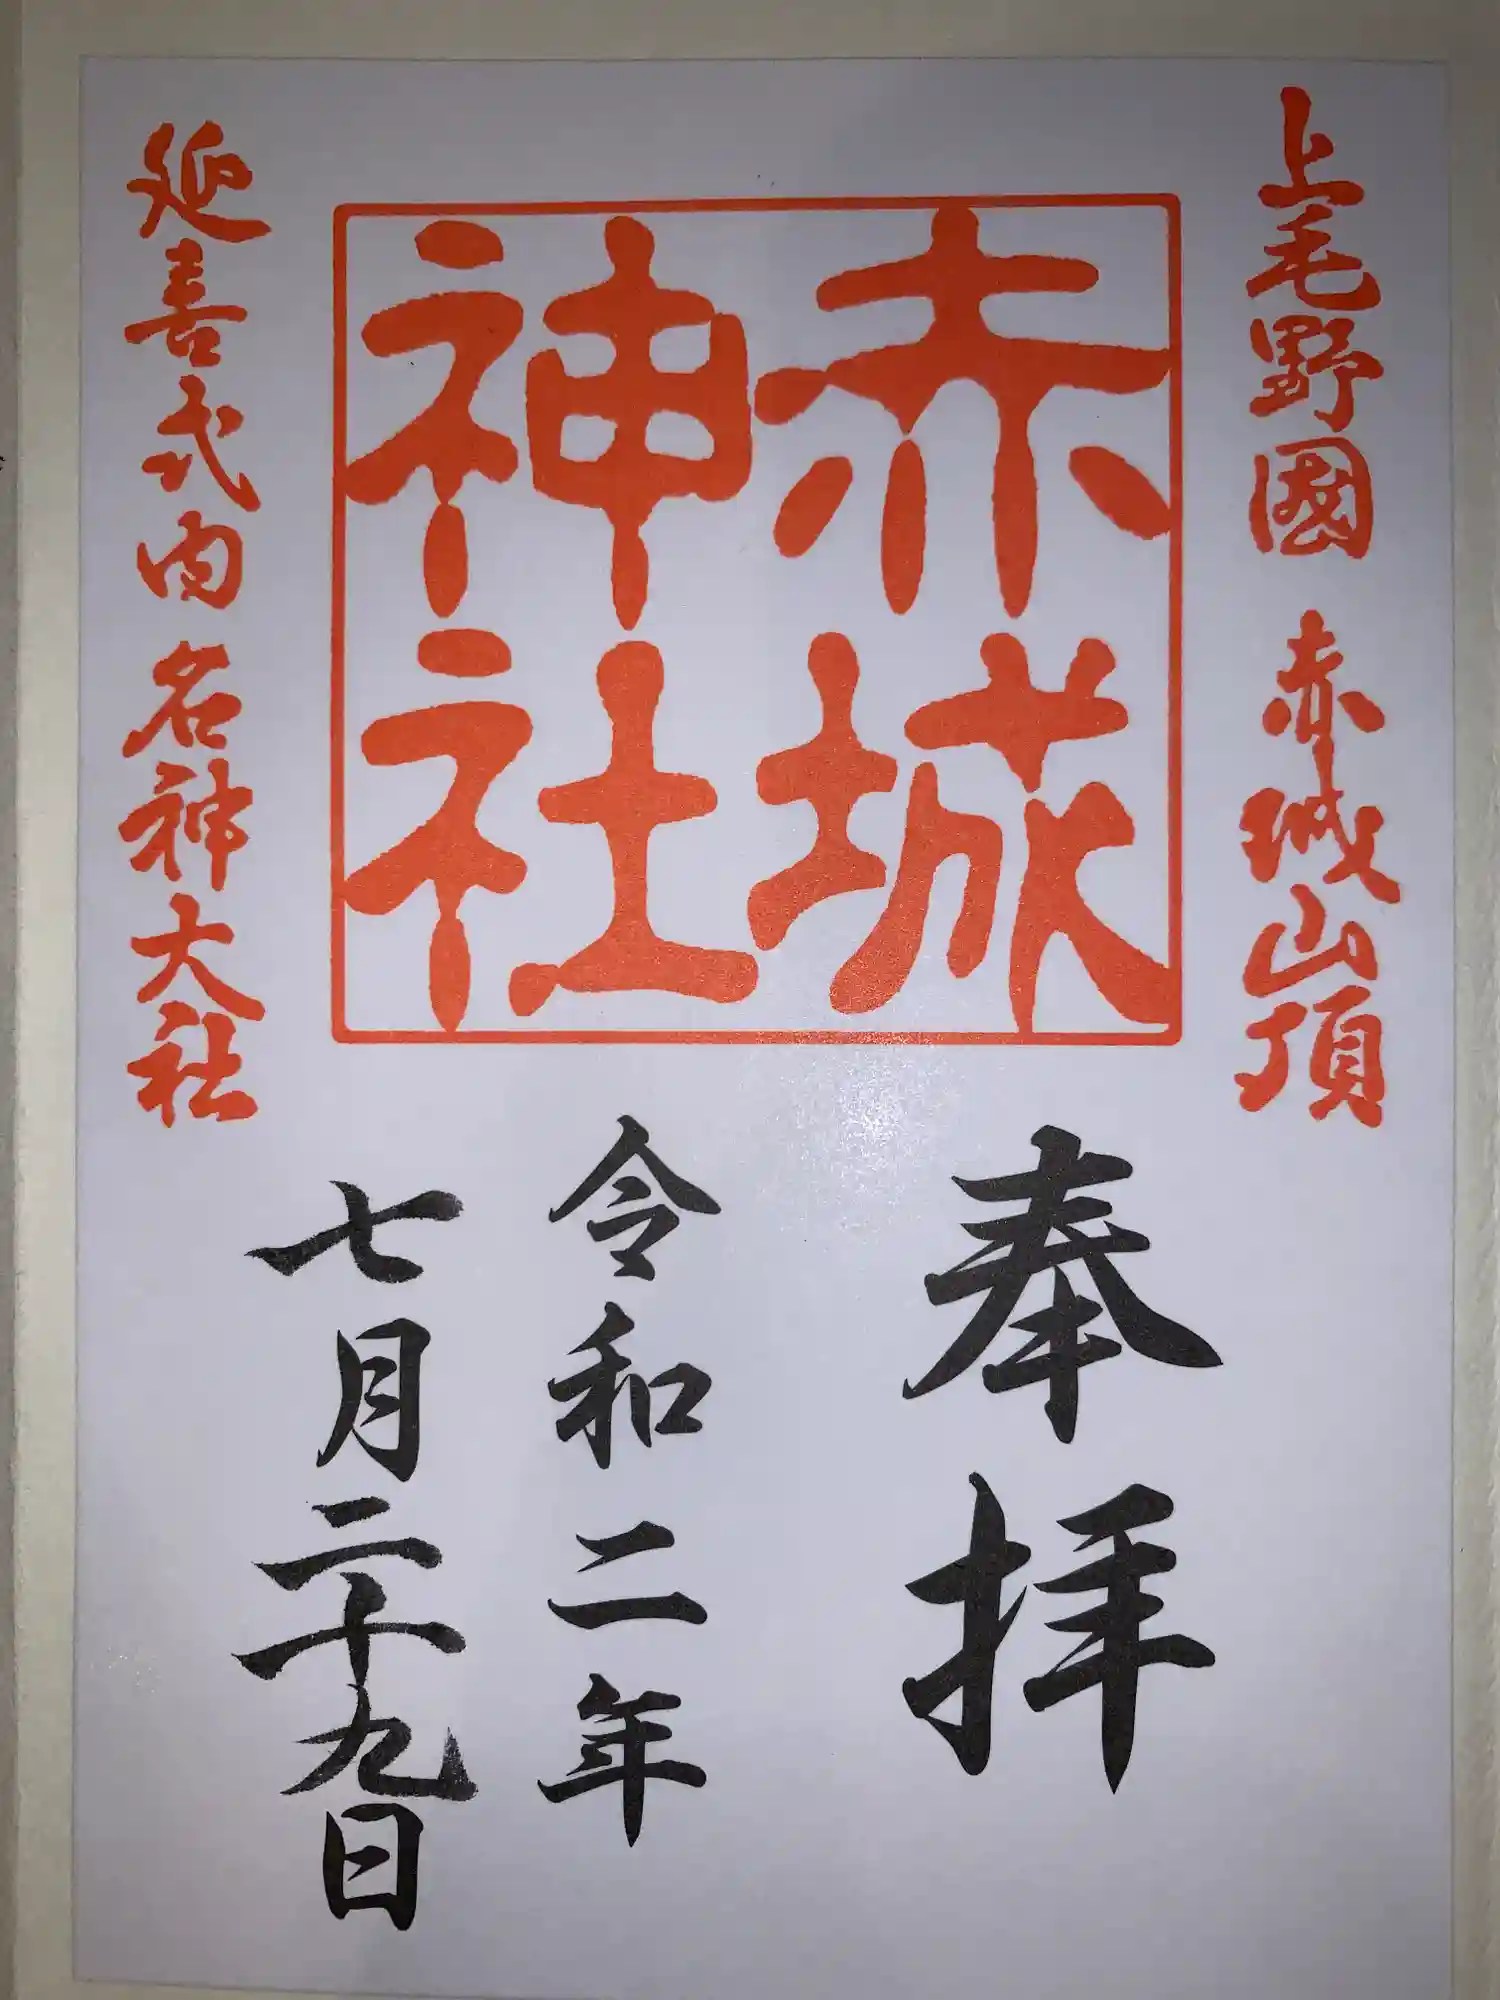 上毛野國 赤城山頂
赤城
神社
延喜式内 名神大社
奉拝
令和二年
七月二十九日